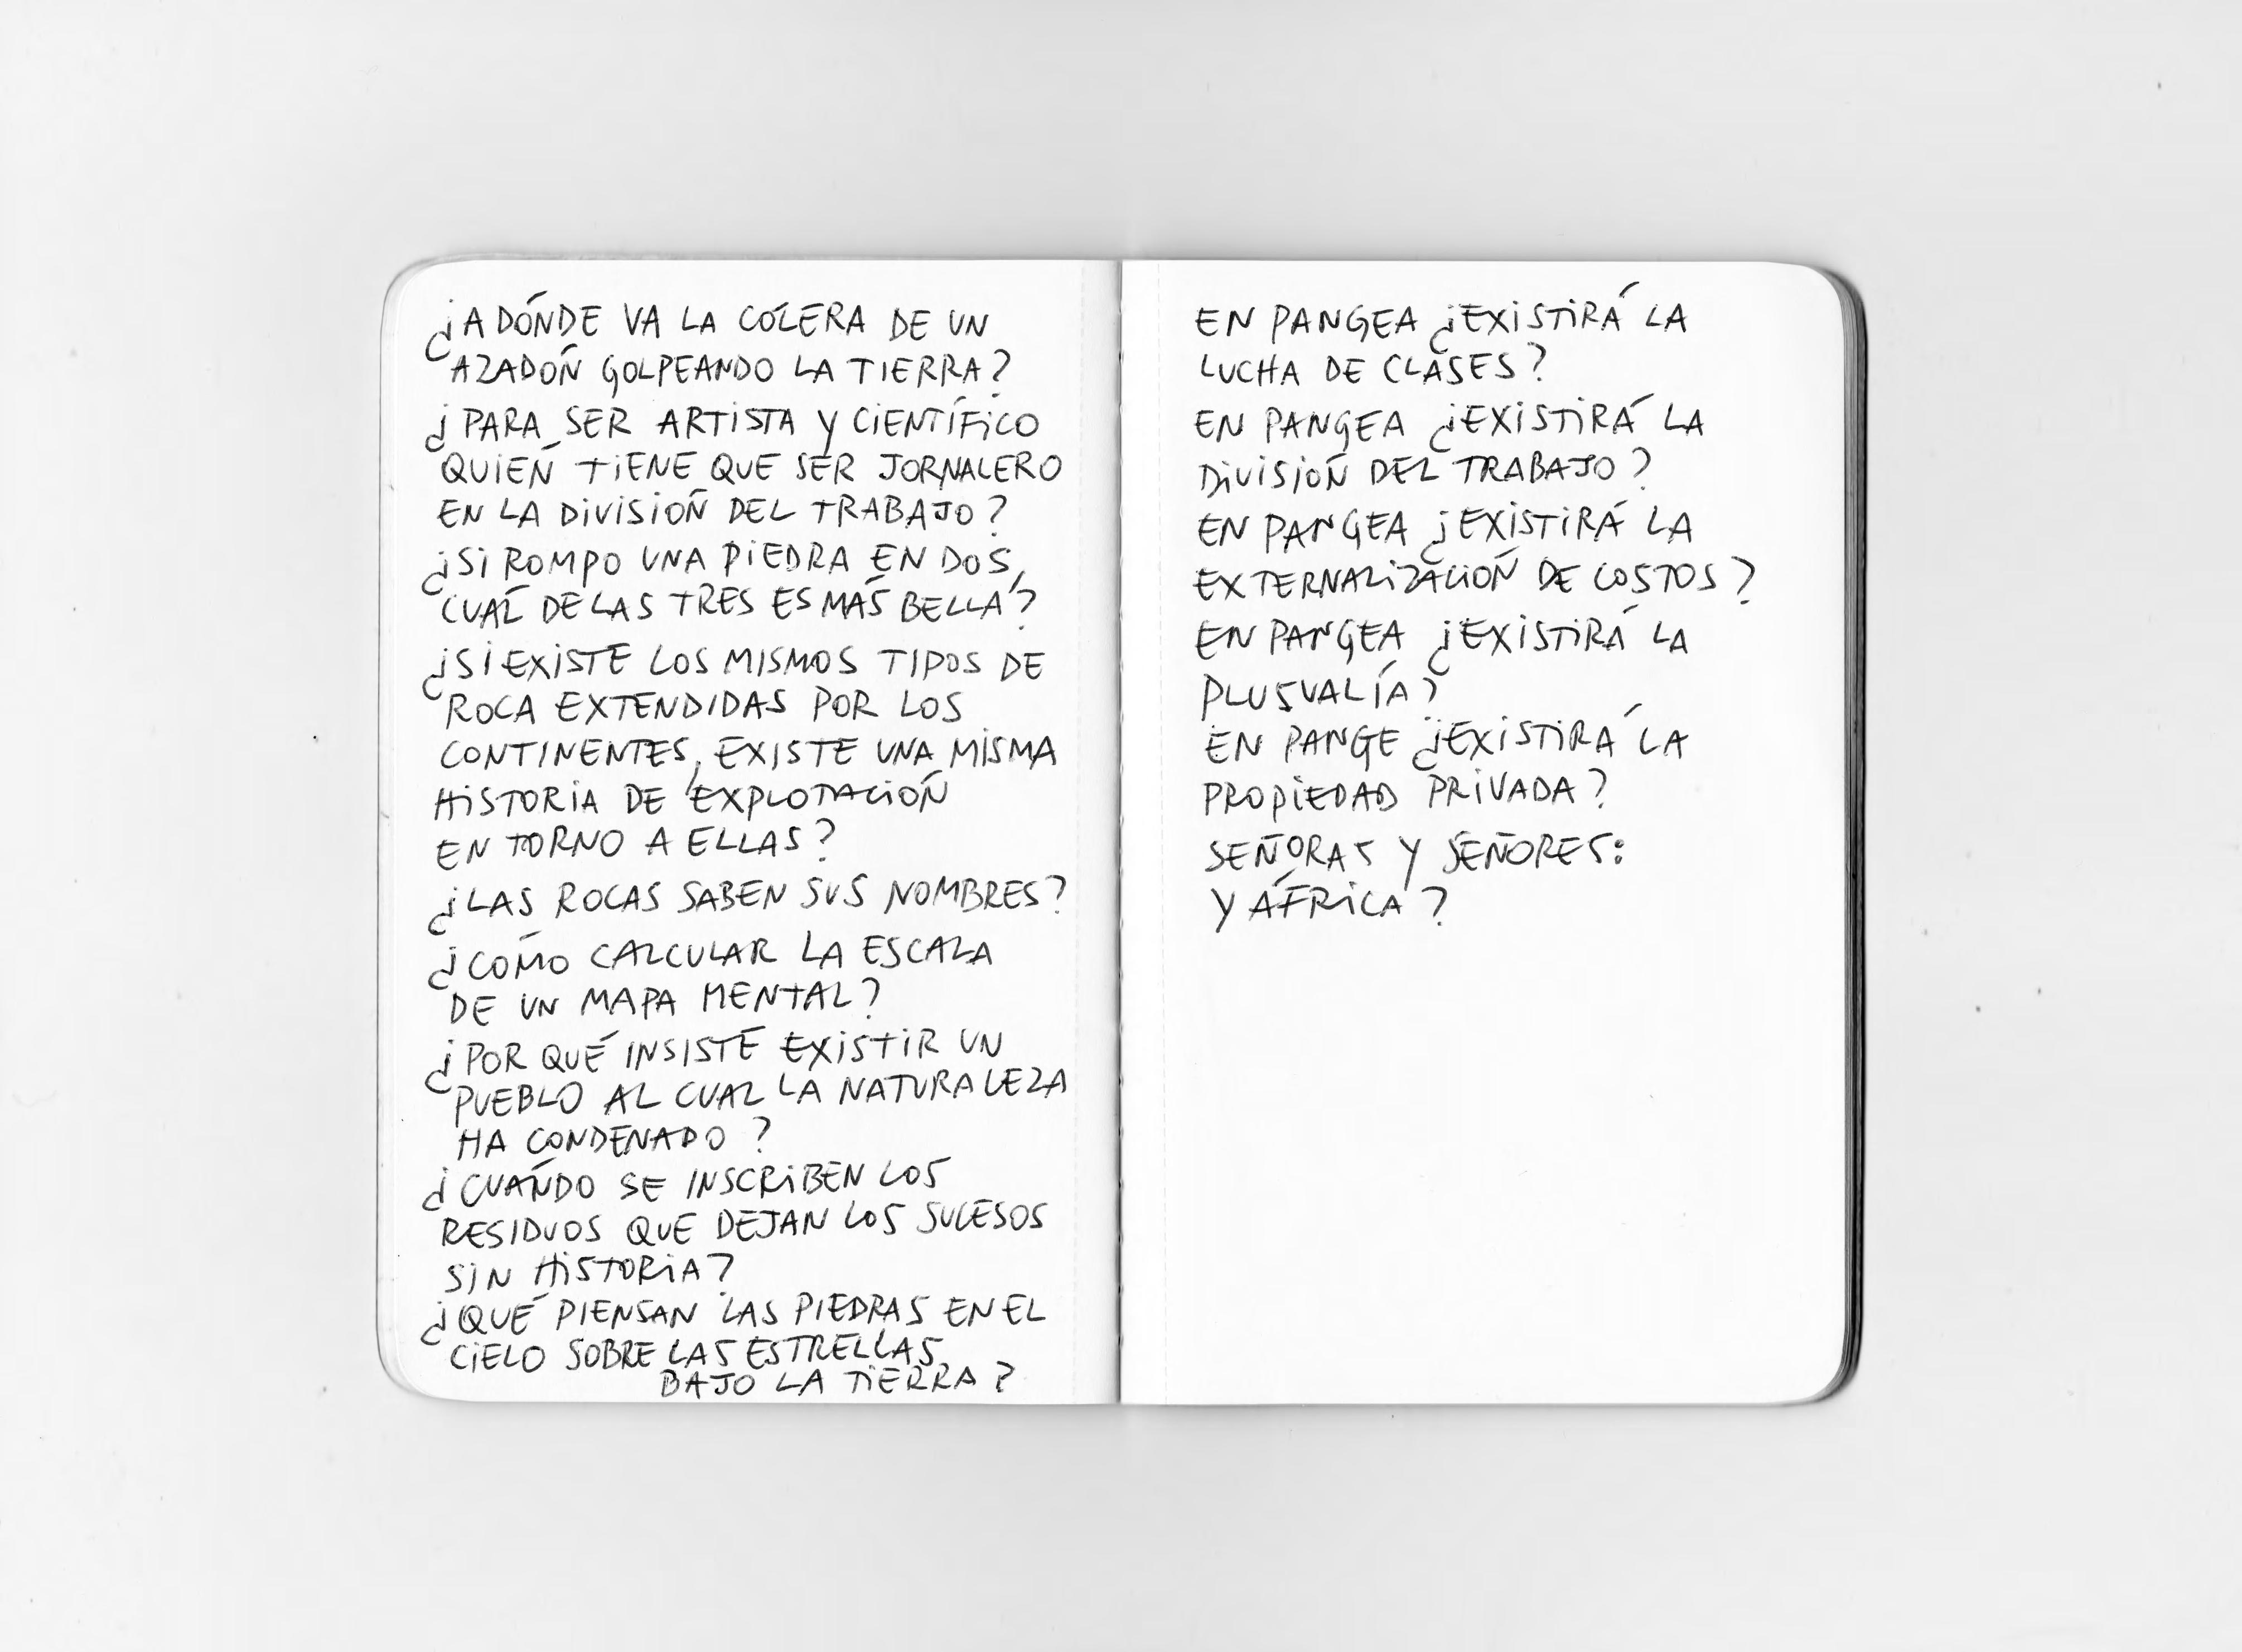 ¿A DÓNDE VA LA CÓLERA DE UN
AZADÓN GOLPEANDO LA TIERRA?
¿PARA SER ARTISTA Y CIENTÍFICO
QUIÉN TIENE QUE SER JORNALERO
EN LA DIVISIÓN DEL TRABAJO?
¿SI ROMPO UNA PIEDRA EN DOS,
CUÁL DE LAS TRES ES MÁS BELLA?
¿SI EXISTE LOS MISMOS TIPOS DE
ROCA EXTENDIDAS POR LOS
CONTINENTES, EXISTE UNA MISMA
HISTORIA DE EXPLOTACIÓN
EN TORNO A ELLAS?
¿LAS ROCAS SABEN SUS NOMBRES?
¿CÓMO CALCULAR LA ESCALA
DE UN MAPA MENTAL?
¿POR QUÉ INSISTE EXISTIR UN
PUEBLO AL CUAL LA NATURALEZA
HA CONDENADO?
¿CUÁNDO SE INSCRIBEN LOS
RESIDUOS QUE DEJAN LOS SUCESOS
SIN HISTORIA?
¿QUÉ PIENSAN LAS PIEDRAS EN EL
CIELO SOBRE LAS ESTRELLAS
BAJO LA TIERRA?
EN PANGEA ¿EXISTIRÁ LA
LUCHA DE CLASES?
EN PANGEA ¿EXISTIRÁ LA
DIVISIÓN DEL TRABAJO?
EN PANGEA ¿EXISTIRÁ LA
EXTERNALIZACIÓN DE COSTOS?
EN PANGEA ¿EXISTIRÁ LA
PLUSVALÍA?
EN PANGE ¿EXISTIRÁ LA
PROPIEDAD PRIVADA?
SEÑORAS Y SEÑORES:
Y ÁFRICA?